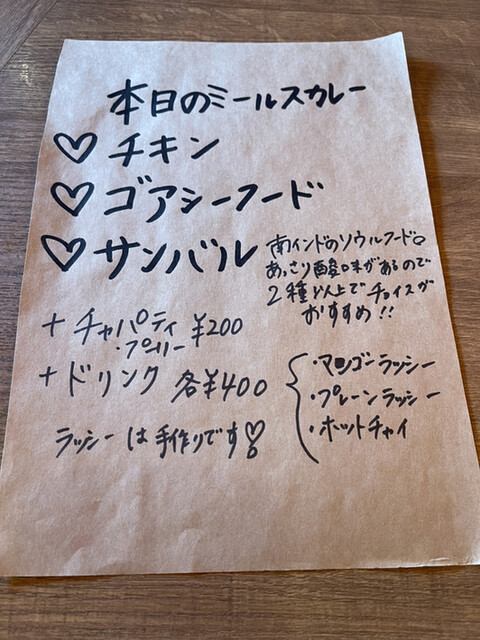 本日のミールスカレー
♡ チキン
♡ ゴアシーフード
♡ サンバル
南インドのソウルフード。
あっさり酸味があるので
2種以上でチョイスが
おすすめ!!
+ チャパティ ¥200
・プーリー
+ ドリンク 各¥400
・マンゴーラッシー
・プレーンラッシー
・ホットチャイ
ラッシーは手作りです♡